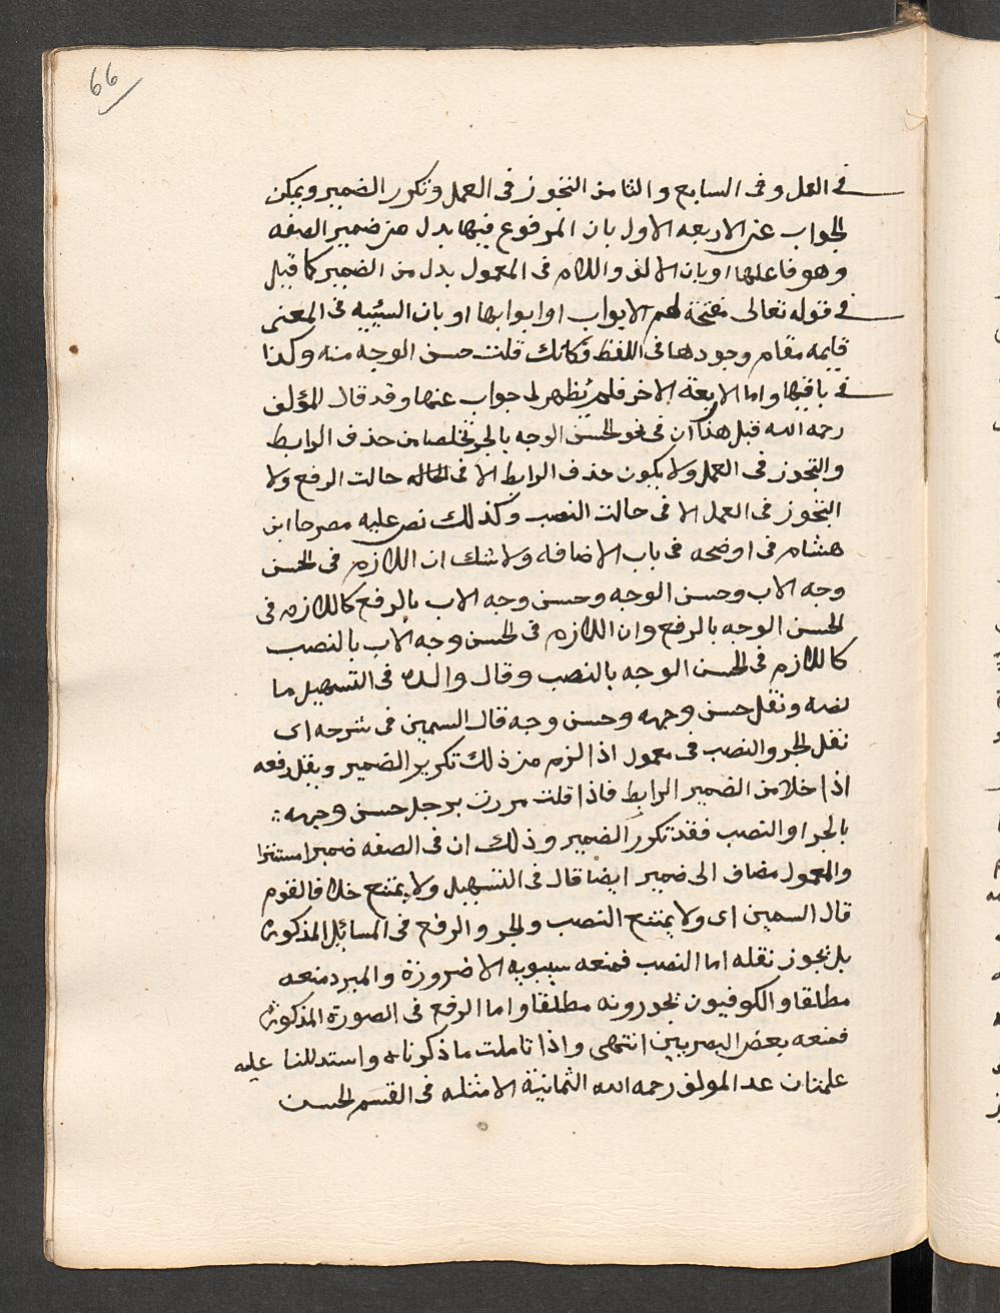 66
في العمل وفى السابع والثامن التجوز فى العمل وتكرر الضمير ويمكن
الجواب عن الاربعه الاول بان المرفوع فيها بدل من ضمير الصفه
وهو فاعلها او بان الالف واللام فى المعمول بدل من الضمير كما قيل
في قوله تعالى مفتحة لهم الابواب اى ابوابها او بان السببيه فى المعنى
قايمه مقام وجودها فى اللفظ فكانك قلت حسن الوجه منه وكذا
في باقيها واما الاربعة الاخر فلم يظهر لى جواب عنها وقد قال المؤلف
رحمه الله قبل هذا ان فى نحو الحسن الوجه بالجر تخلصا من حذف الرابط
والتجوز فى العمل ولا يكون حذف الرابط الا فى حالت الرفع ولا
التجوز فى العمل الا فى حالت النصب وكذلك نص عليه مصرحا ابن
هشام فى اوضحه فى باب الاضافه ولا شك ان اللازم فى الحسن
وجه الاب وحسن الوجه وحسن وجه الاب بالرفع كاللازم فى
الحسن الوجه بالرفع وان اللازم فى الحسن وجه الاب بالنصب
كاللازم فى الحسن الوجه بالنصب وقال فى التسهيل ما
نصه ونقل حسن وجهه وحسن وجه قال السمين فى شرحه اى
نقل الجر والنصب فى معمول اذا لزم من ذلك تكرير الضمير ويقل رفعه
اذا خلا من الضمير الرابط فاذا قلت مررت برجل حسن وجهه
بالجر او النصب فقد تكرر الضمير وذلك ان فى الصفه ضميرا مستترا
والمعمول مضاف الى ضمير ايضا قال فى التسهيل ولا يمتنع خلافا لقوم
قال السمين اى ولا يمتنع النصب والجر والرفع فى المسائل المذكورة
بل تجوز نقله اما النصب فمنعه سيبويه الا ضرورة والمبرد منعه
مطلقا والكوفيون يجوزونه مطلقا واما الرفع فى الصورة المذكورة
فمنعه بعض البصريين انتهى واذا تاملت ما ذكرناه واستدللنا عليه
علمت ان عد المولف رحمه الله الثمانية الامثله فى القسم الحسن